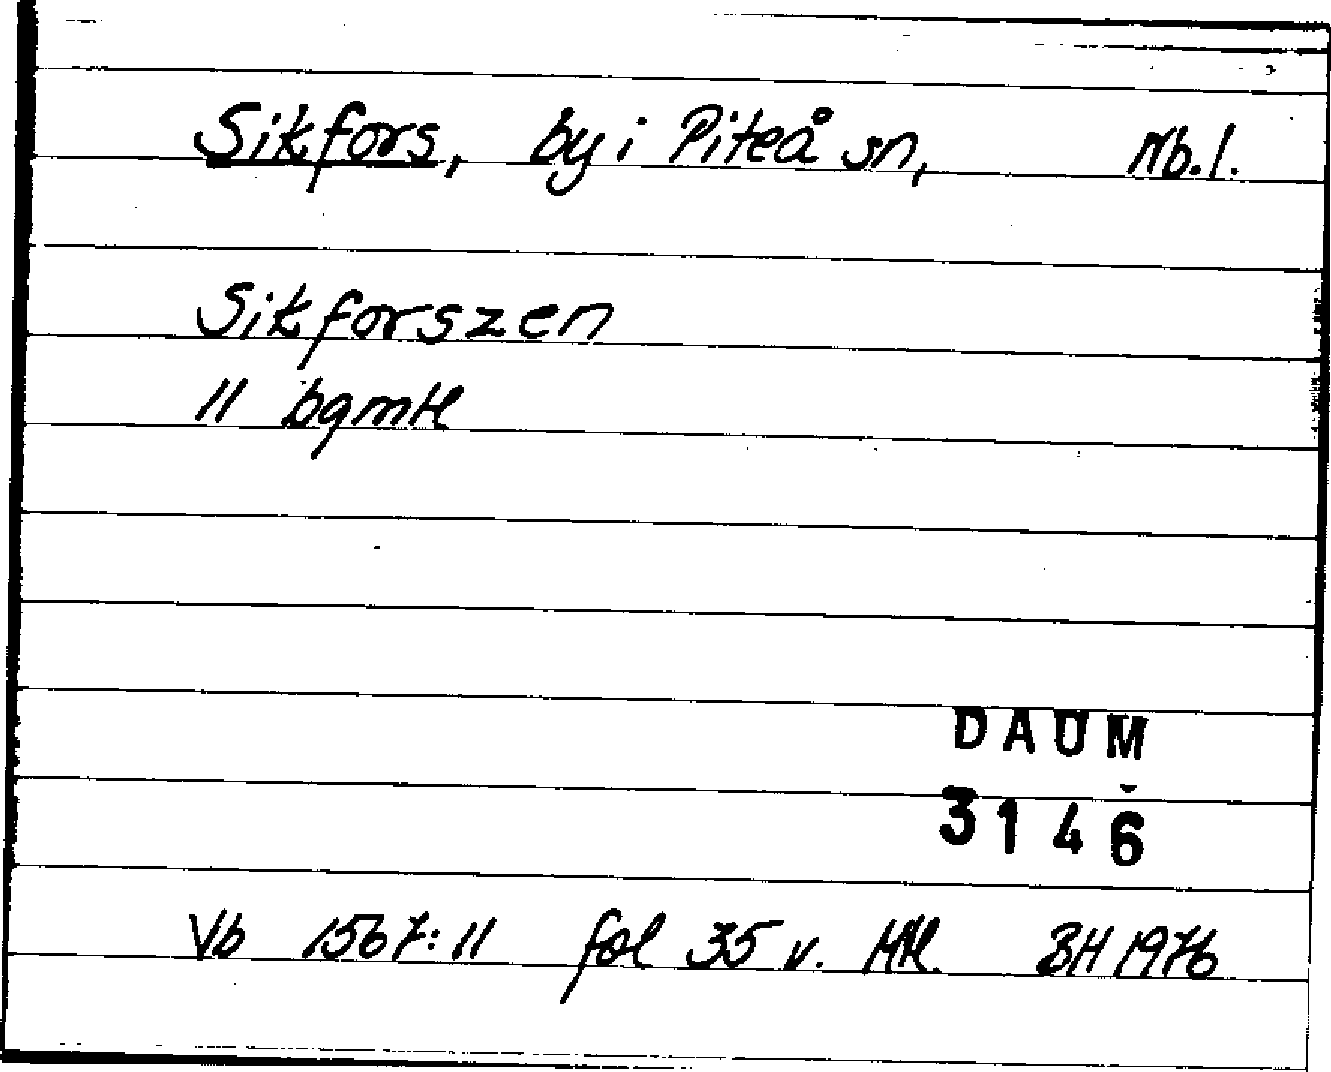 Sikfors, by i Piteå sn, Nb.l.
Sikforszen
11 bgmtl
DAUM
3146
Vb 1567:11 fol 35 v. HH. BH 1976